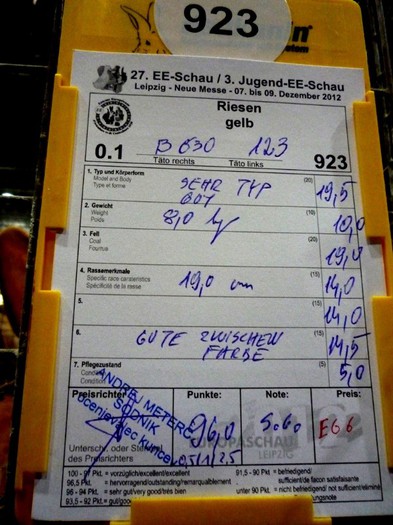 923
27. EE-Schau / 3. Jugend-EE-Schau
Leipzig - Neue Messe - 07. bis 09. Dezember 2012
Riesen
gelb
0.1 B 630 123 923
Täto rechts Täto links
1. Typ und Körperform (20) 19,5
Model and Body
Type et forme
SEHR TYP
GUT
2. Gewicht (10) 10,0
Weight
Poids
8,0 kg
3. Fell (20) 19,0
Coat
Fourrue
4. Rassemerkmale (15) 14,0
Specific race carateristics
Spécificité de la mese
19,0 cm
5. (15) 14,0
6. (15) 14,5
GUTE ZWISCHEN
FARBE
7. Pflegezustand (5) 5,0
Preisrichter Punkte: Note: Preis:
ANDREJ METERC
SODNIK
ocenjevalec kuncev
96,0
Unterschr. oder Stempel
des Preisrichters
EUROPASCHAU
LEIPZIG
100 - 97 Pkt. = vorzüglich/excellent/excellent
96,5 Pkt. = hervorragend/outstanding/remarquablement
96 - 94 Pkt. = sehr gut/very good/très bien
93,5 - 92 Pkt. = gut/good
91,5 - 90 Pkt. = befriedigend/
sufficient/de facon satisfaisante
unter 90 Pkt. = nicht befriedigend/ not sufficient/